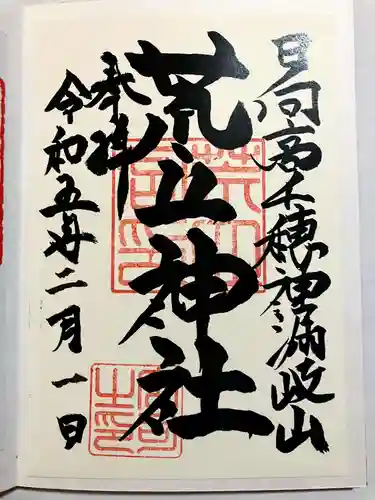 日向高千穂神漏岐山
荒立神社
奉拝
令和五年二月一日